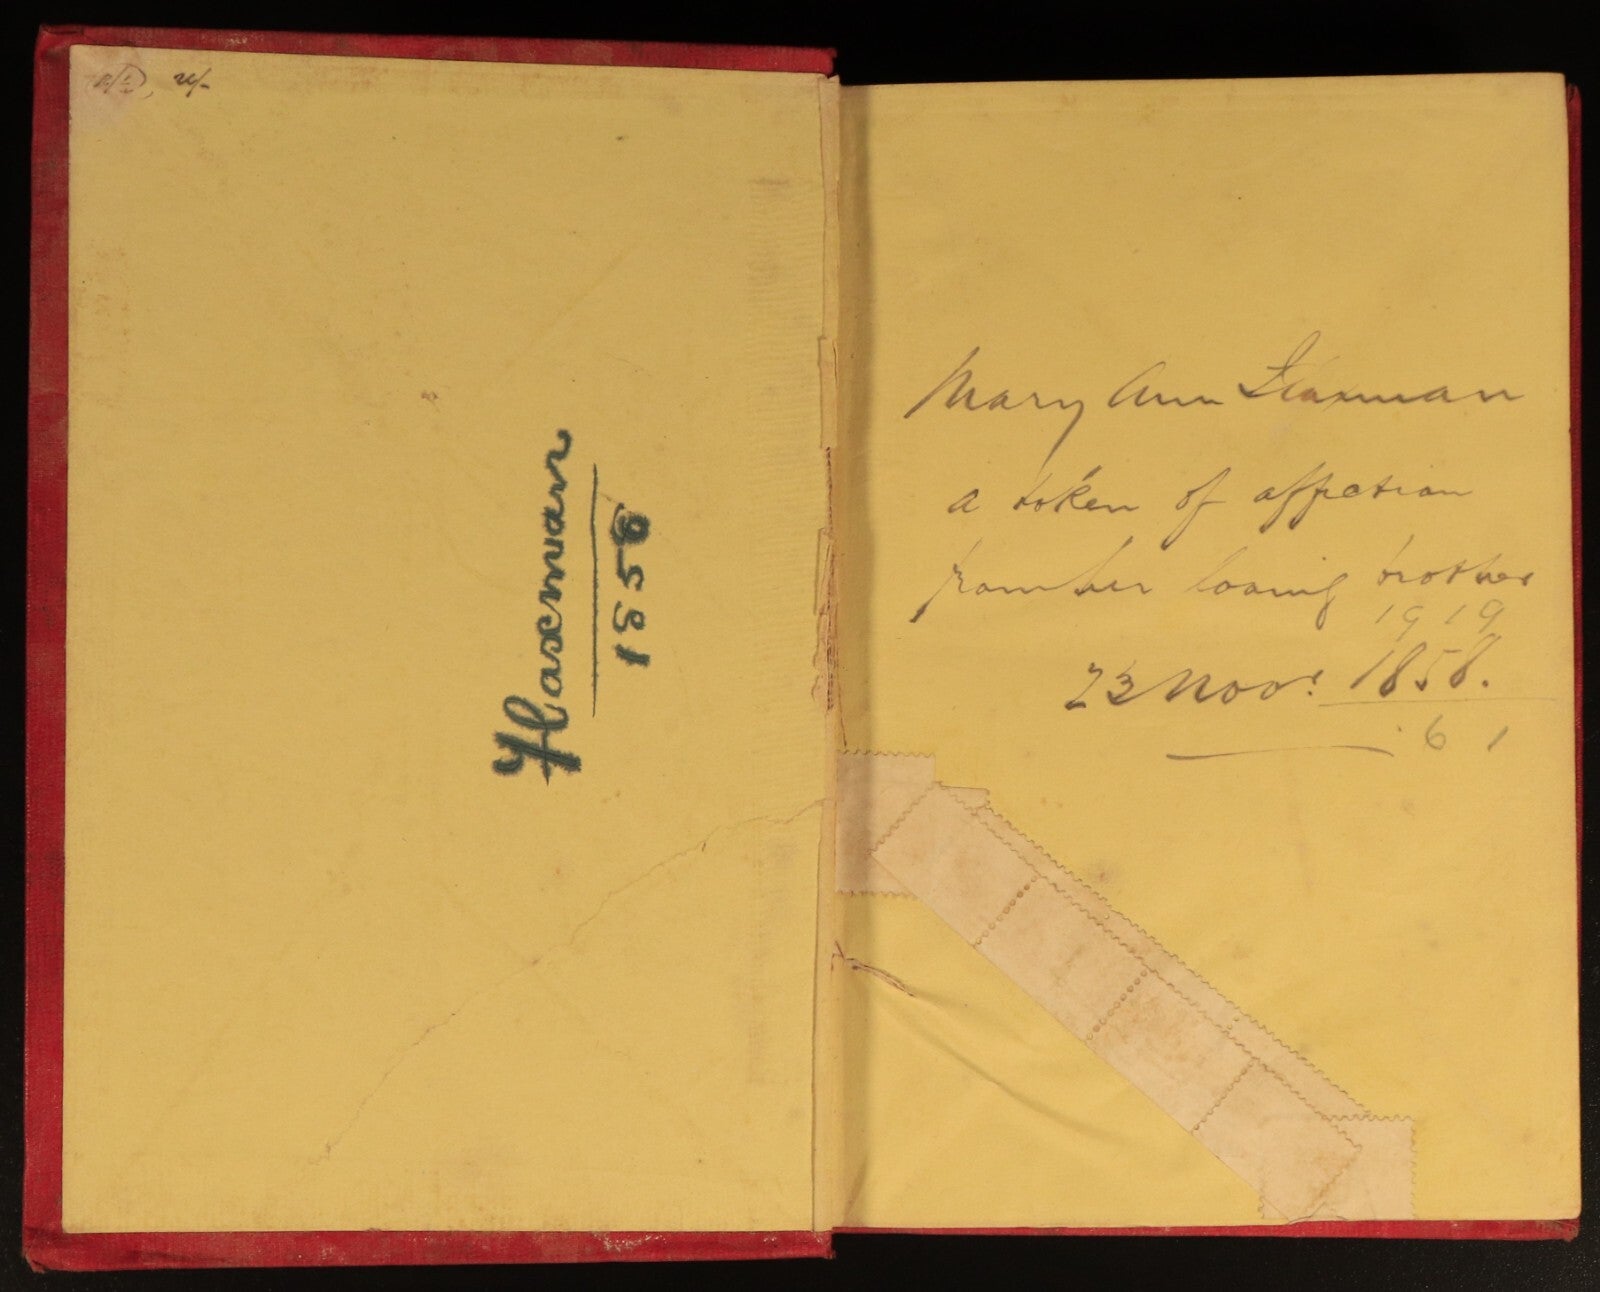 Flaxman
1858
Mary Ann Flaxman
a token of affection
from her loving brother
1919
23 Novr. 1858.
6 1